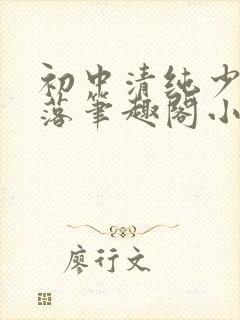 初中清纯少
落笔趣阁小
廖行文